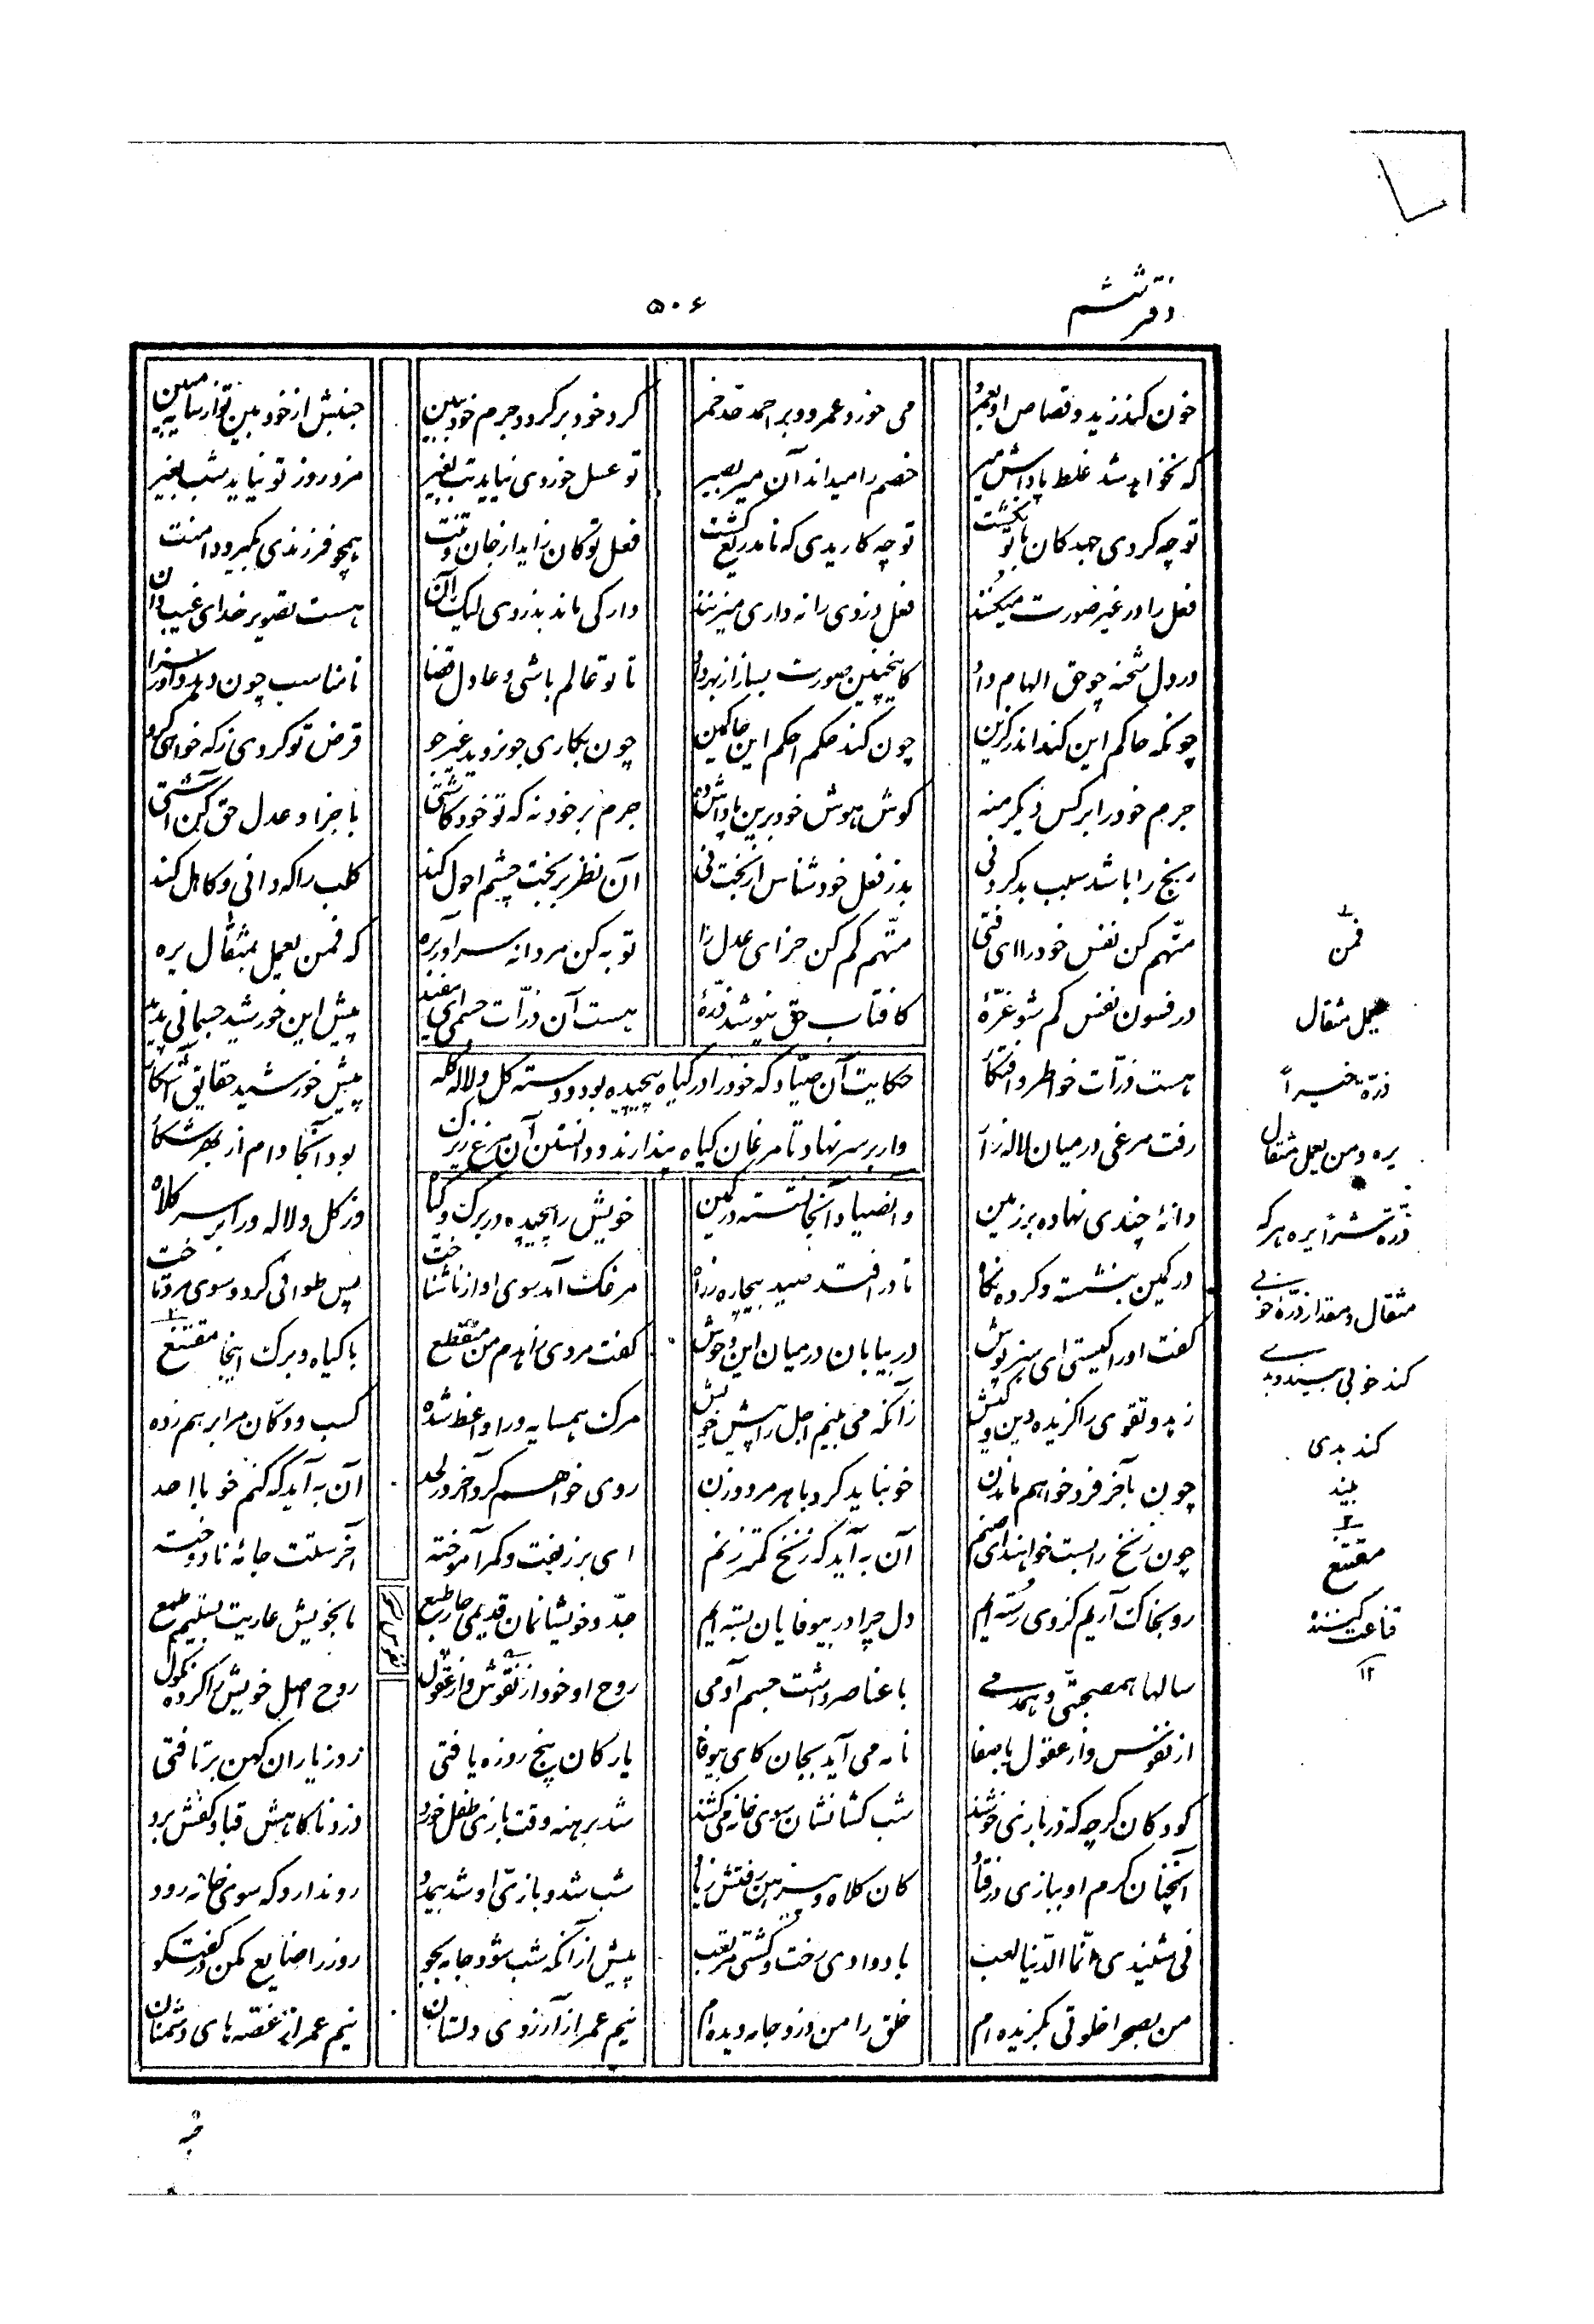 دفتر ششم
۵۰۶
خون کند زید و قصاص او بعمرو می خورد عمرو و بر احمد حد خمر گرد خود برگرد و جرم خود ببین جنبش از خود بین تو از سایه مبین
که نخواهد شد غلط پاداش میر خصم را میداند آن میر بصیر تو عسل خوردی نیاید تب بغیر مزد روز تو نیاید شب بغیر
تو چه کردی جهد کان با تو نگشت تو چه کاریدی که نامد ریع کشت فعل تو کان زاید از جان و تنت همچو فرزندی بگیرد دامنت
فعل را در غیر صورت میکنند فعل دزدی را نه داری میزنند دار کی ماند بدزدی لیک آن هست تصویر خدای غیب دان
در دل شحنه چو حق الهام داد کاینچنین صورت بساز از بهر داد تا تو عالم باشی و عادل قضا نامناسب چون دهد داد و سزا
چونکه حاکم این کند اندر گزین چون کند حکم احکم این حاکمین چون بکاری جو نروید غیر جو قرض تو کردی ز که خواهی گرو
جرم خود را بر کس دیگر منه گوش و هوش خود برین پاداش ده جرم بر خود نه که تو خود کاشتی با جزا و عدل حق کن آشتی
رنج را باشد سبب بد کردنی بد ز فعل خود شناس از بخت نی آن نظر بر بخت چشم احول کند کلب را کهدانی و کاهل کند
متهم کن نفس خود را ای فتی متهم کم کن جزای عدل را توبه کن مردانه سر آور بره که فمن یعمل بمثقال یره
در فسون نفس کم شو غرّهٔ کافتاب حق نپوشد ذرّهٔ هست آن ذرّات جسمی ای مفید پیش این خورشید جسمانی پدید
هست ذرّات خواطر و افتکار پیش خورشید حقایق آشکار
حکایت آن صیّاد که خود را در گیاه پیچیده بود و دسته گل و لاله کله
وار بر سر نهاد تا مرغان گیاه پندارند و دانستن آن مرغ زیرک
رفت مرغی در میان لاله زار بود آنجا دام از بهر شکار
دانهٔ چندی نهاده بر زمین وانصیاد آنجا نشسته در کمین خویش را پیچیده در برگ و گیاه وز گل و لاله ورا بر سر کلاه
در کمین بنشسته و کرده نگاه تا در افتد صید بیچاره ز راه مرغک آمد سوی او از ناشناخت پس طوافی کرد و سوی مرد تاخت
گفت او را کیستی ای سبز پوش در بیابان در میان این وحوش گفت مردی زاهدم من منقطع با گیاه و برگ اینجا مقتنع
زهد و تقوی را گزیده دین و کیش زانکه می بینم اجل را پیش خویش مرگ همسایه ورا واعظ شده کسب و دکان مرا برهم زده
چون بآخر فرد خواهم ماندن خو نباید کرد با هر مرد و زن روی خواهم کرد آخر در لحد آن به آید که کنم خو با احد
چون زنخ را بست خواهند ای صنم آن به آید که زنخ کمتر زنم ای بزربفت و کمر آموخته آخرستت جامهٔ نادوخته
رو بخاک آریم کز وی رسته ایم دل چرا در بیوفایان بسته ایم جدّ و خویشانمان قدیمی چار طبع ما بخویش عاریت بستیم طمع
سالها همصحبتی و همدمی با عناصر داشت جسم آدمی روح او خود از نقوش و از عقول روح اصل خویش را کرده نکول
از نفوس و از عقول با صفا نامه می آید بجان کای بیوفا یارکان پنج روزه یافتی رو ز یاران کهن برتافتی
کودکان گرچه که در بازی خوشند شب کشانشان سوی خانه می کشند شد برهنه وقت بازی طفل خرد دزد ناگاهش قبا و کفش برد
آنچنان گرم او ببازی درفتاد کان کلاه و پیرهن رفتش ز یاد شب شد و بازی او شد بیمدد رو ندارد که سوی خانه رود
نی شنیدی انّما الدّنیا لعب باد دادی رخت و گشتی مرتعب پیش از آنکه شب شود جامه بجو روز را ضایع مکن در گفت و گو
من بصحرا خلوتی بگزیده ام خلق را من دزد جامه دیده ام نیم عمر از آرزوی دلستان نیم عمر از غصّه های دشمنان
فمن
یعمل مثقال
ذرّة خیراً
یره و من یعمل مثقال
ذرّة شرّاً یره هر که
مثقال و مقدار ذرّهٔ خوبی
کند خوبی بیند و بدی
کند بدی
بیند
مقتنع
قناعت کننده
۱۲